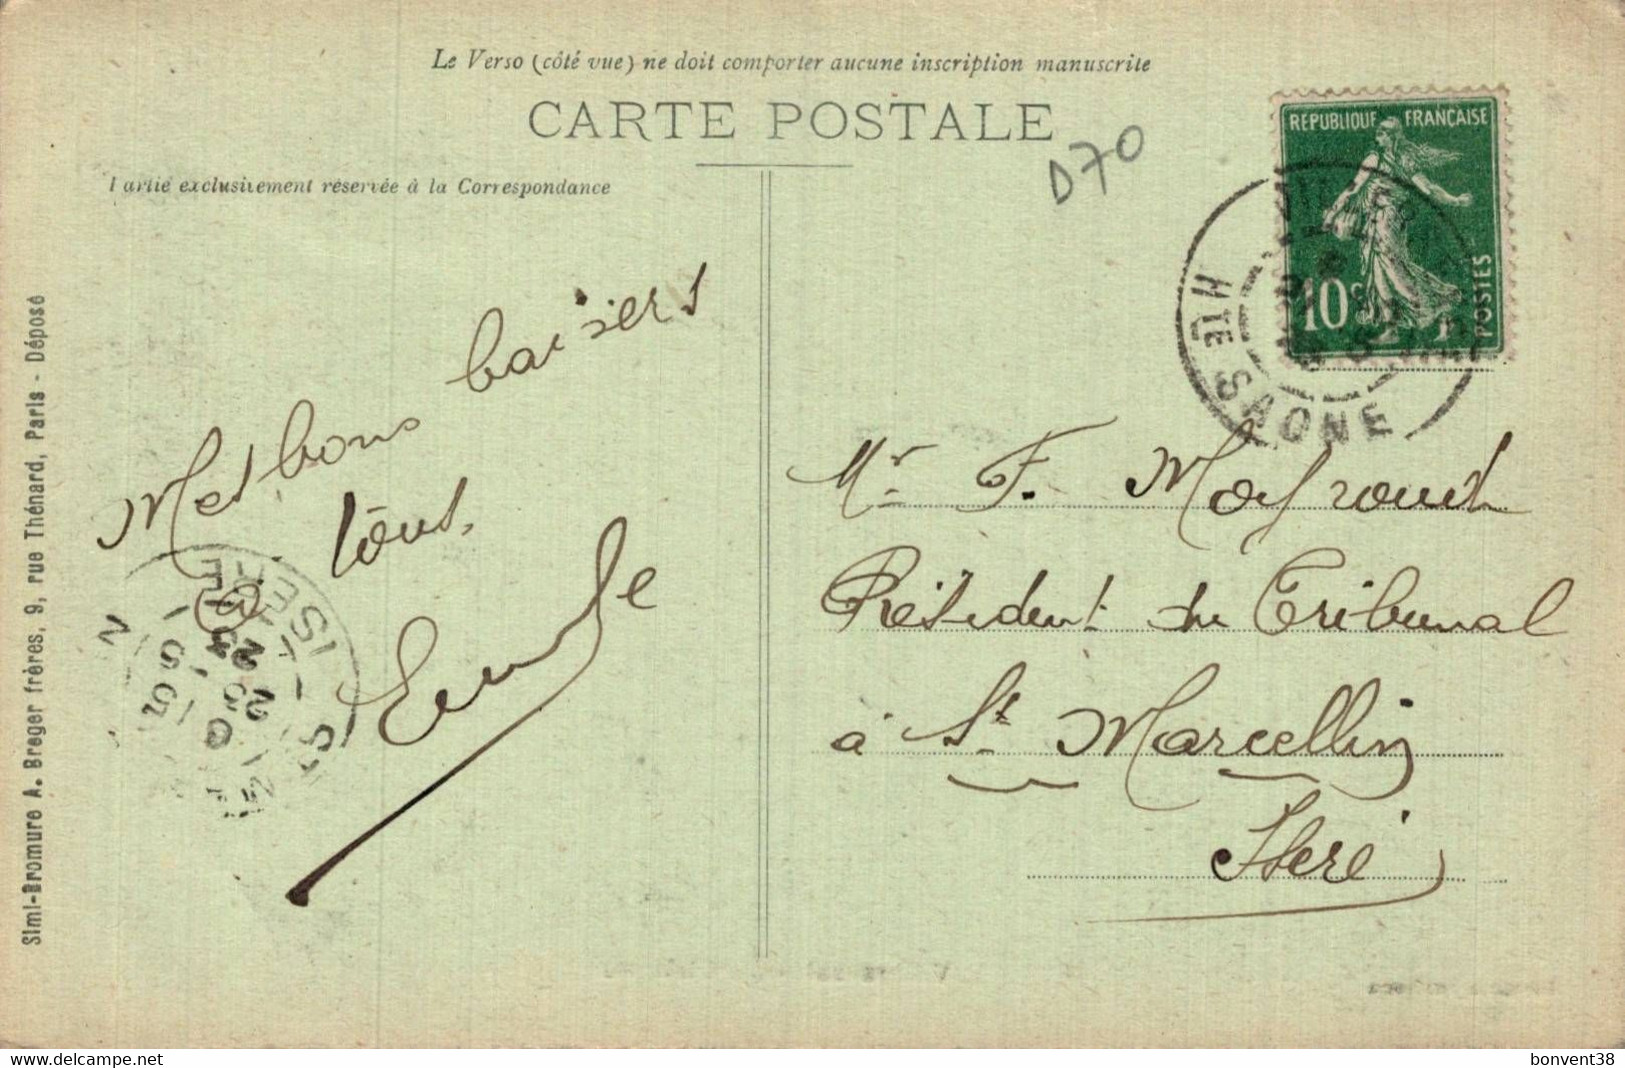 Le Verso (côté vue) ne doit comporter aucune inscription manuscrite
CARTE POSTALE
D70
Partie exclusivement réservée à la Correspondance
REPUBLIQUE FRANÇAISE
10c
POSTES
HTE SAONE
Mes bons baisers
à tous.
Mr F.
Président du Tribunal
à St Marcellin
Isère
ISERE
Simi-Bromure A. Breger frères, 9, rue Thénard, Paris - Déposé
delcampe.net
bonvent38